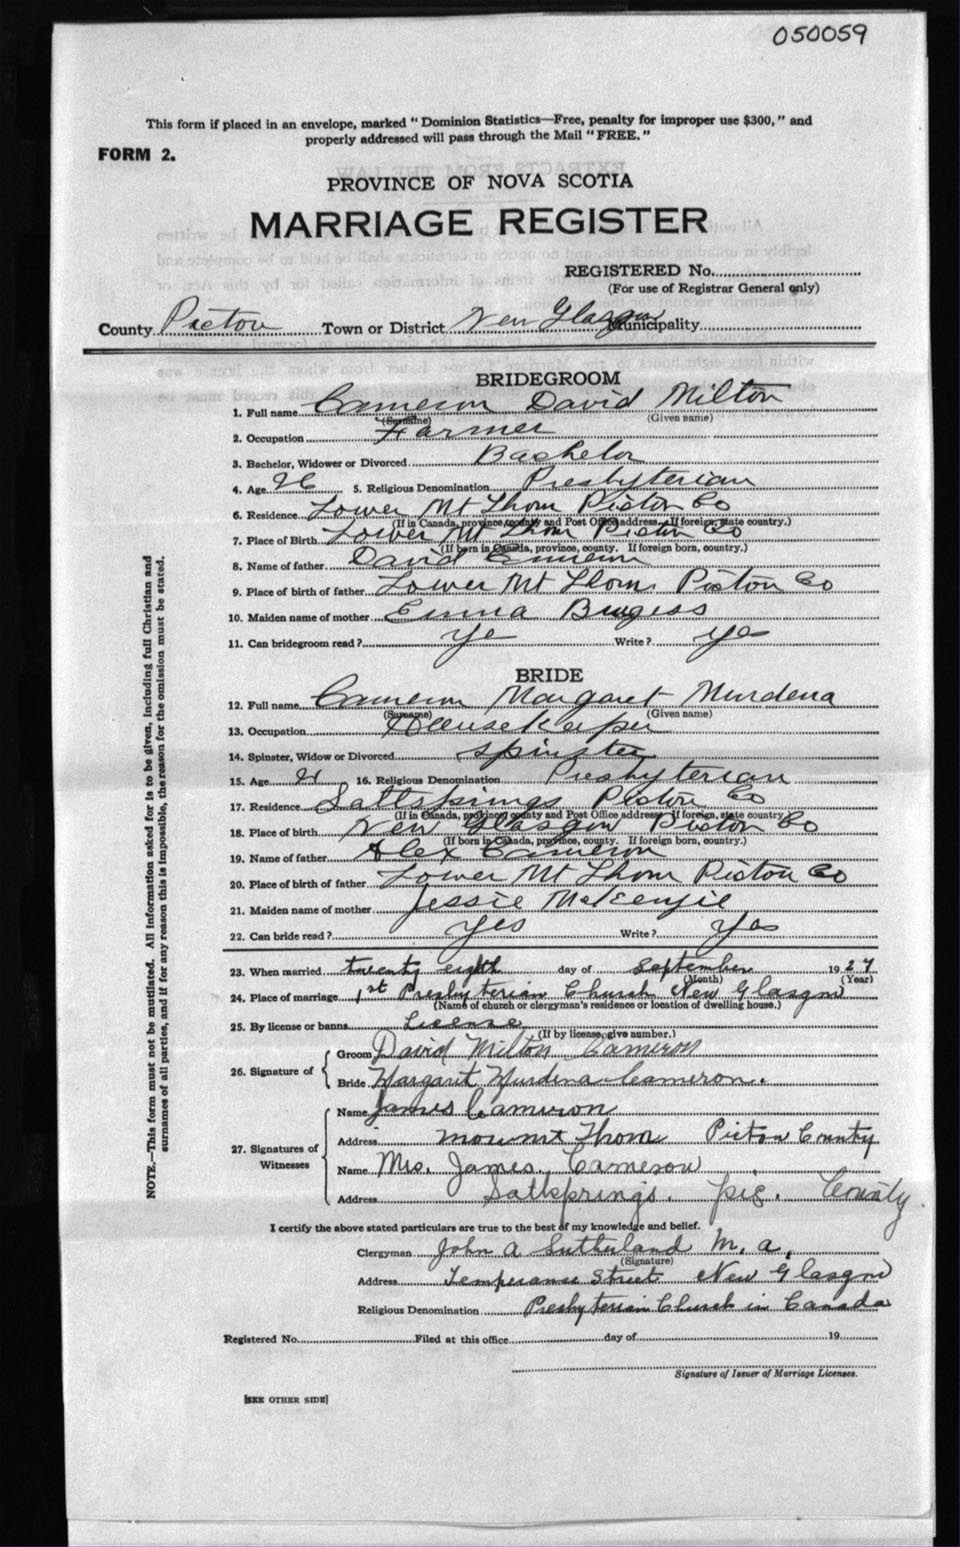 050059
This form if placed in an envelope, marked "Dominion Statistics—Free, penalty for improper use $300," and
properly addressed will pass through the Mail "FREE."
FORM 2.
PROVINCE OF NOVA SCOTIA
MARRIAGE REGISTER
REGISTERED No.
(For use of Registrar General only)
County Pictou Town or District New Glasgow Municipality
BRIDEGROOM
1. Full name Cameron David Milton
(Surname) (Given name)
2. Occupation Farmer
3. Bachelor, Widower or Divorced Bachelor
4. Age 26 5. Religious Denomination Presbyterian
6. Residence Lower Mt Thom Pictou Co
(If in Canada, province, county and Post Office address. If foreign, state country.)
7. Place of Birth Lower Mt Thom Pictou Co
(If born in Canada, province, county. If foreign born, country.)
8. Name of father David Cameron
9. Place of birth of father Lower Mt Thom Pictou Co
10. Maiden name of mother Emma Burgess
11. Can bridegroom read? Ye Write? Yes
BRIDE
12. Full name Cameron Margaret Murdena
(Surname) (Given name)
13. Occupation Housekeeper
14. Spinster, Widow or Divorced Spinster
15. Age 21 16. Religious Denomination Presbyterian
17. Residence Saltsprings Pictou Co
(If in Canada, province, county and Post Office address. If foreign, state country.)
18. Place of birth New Glasgow Pictou Co
(If born in Canada, province, county. If foreign born, country.)
19. Name of father Alex Cameron
20. Place of birth of father Lower Mt Thom Pictou Co
21. Maiden name of mother Jessie McKenzie
22. Can bride read? Yes Write? Yes
23. When married twenty eighth day of September 1927
(Month) (Year)
24. Place of marriage 1st Presbyterian Church New Glasgow
(Name of church or clergyman's residence or location of dwelling house.)
25. By license or banns License
(If by license, give number.)
26. Signature of Groom David Milton Cameron
Bride Margaret Murdena Cameron.
27. Signatures of Witnesses
Name James Cameron
Address Mount Thom Pictou County
Name Mrs. James Cameron
Address Saltsprings. Pic. County.
I certify the above stated particulars are true to the best of my knowledge and belief.
Clergyman John A Sutherland M.A.
(Signature)
Address Temperance Street New Glasgow
Religious Denomination Presbyterian Church in Canada
Registered No. Filed at this office day of 19
Signature of Issuer of Marriage Licenses.
[SEE OTHER SIDE]
NOTE.—This form must not be mutilated. All information asked for is to be given, including full Christian and
surnames of all parties, and if for any reason this is impossible, the reason for the omission must be stated.